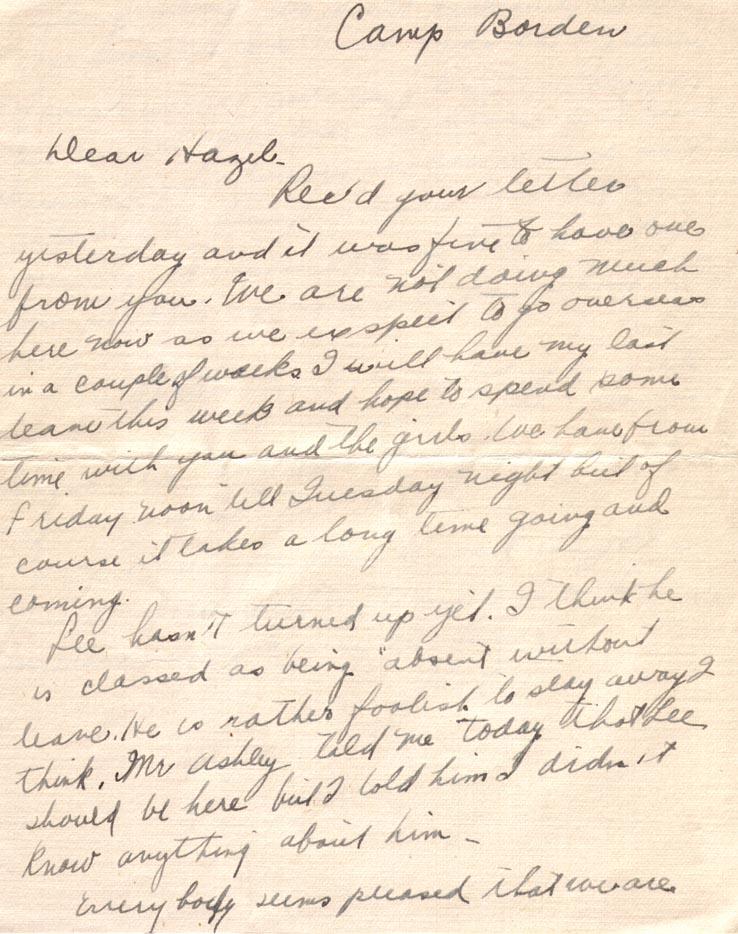 Camp Borden
Dear Hazel-
Rec'd your letter
yesterday and it was fine to have one
from you. We are not doing much
here now as we exspect to go overseas
in a couple of weeks. I will have my last
leave this week and hope to spend some
time with you and the girls. We have from
Friday noon till Tuesday night but of
course it takes a long time going and
coming.
Lee hasn't turned up yet. I think he
is classed as being "absent without
leave. He is rather foolish to stay away I
think. Mr Ashley told me today that Lee
should be here but I told him I didn't
know anything about him -
Every body seems pleased that we are